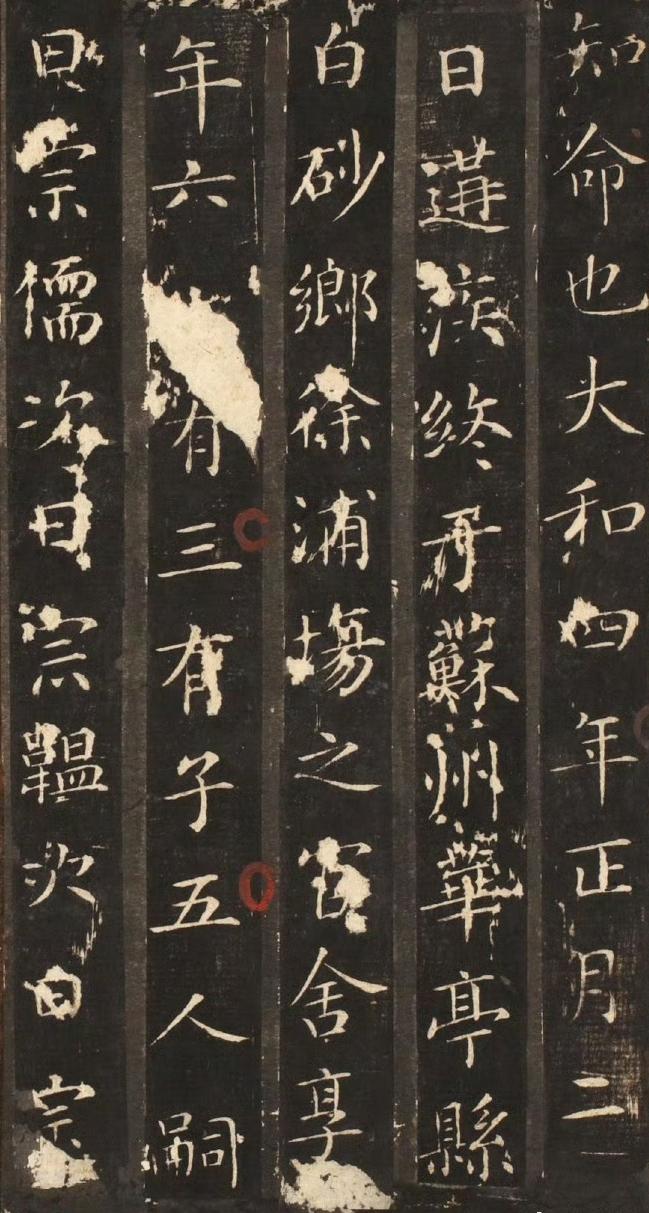 知命也大和四年正月二
日遘疾終于蘇州華亭縣
白砂鄉徐浦場之官舍享
年六有三有子五人嗣
曰宗儒次曰宗韞次曰宗